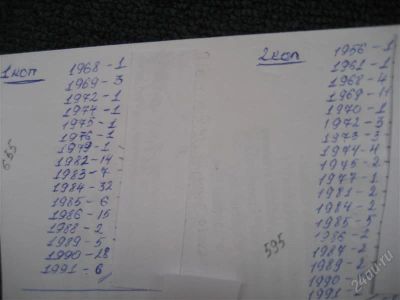 1 коп
1968 - 1
1969 - 3
1972 - 1
1974 - 1
1975 - 1
1976 - 1
1979 - 1
1982 - 14
1983 - 7
1984 - 32
1985 - 6
1986 - 15
1988 - 2
1989 - 5
1990 - 18
1991 - 6
2 коп
1956 - 1
1961 - 1
1968 - 4
1969 - 11
1970 - 1
1972 - 3
1973 - 3
1974 - 4
1975 - 2
1977 - 1
1981 - 2
1984 - 2
1985 - 5
1986 - 2
1987 - 2
1989 - 2
1990 -
1991 -
595
24au.ru